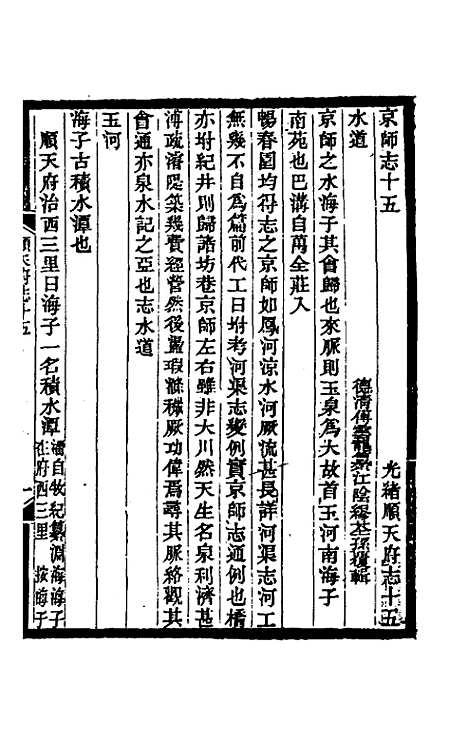 京師志十五　光緒順天府志十五
水道　德清傅雲龍纂江陰繆荃孫覆輯
京師之水海子其會歸也來脈則玉泉爲大故首玉河南海子
南苑也巴溝自萬全莊入
暢春園均得志之京師如鳳河涼水河厥流甚長詳河渠志河工
無幾不自爲篇前代工日坿考河渠志變例實京師志通例也橋
亦坿紀井則歸諸坊巷京師左右雖非大川然天生名泉利濟甚
溥疏濬隄築幾費經營然後蠲瑕滌穢厥功偉焉尋其脈絡觀其
會通亦泉水記之亞也志水道
玉河
海子古積水潭也
順天府治西三里曰海子一名積水潭潘自牧紀纂淵海海子
在府西三里　按海子
順天府志十五　一